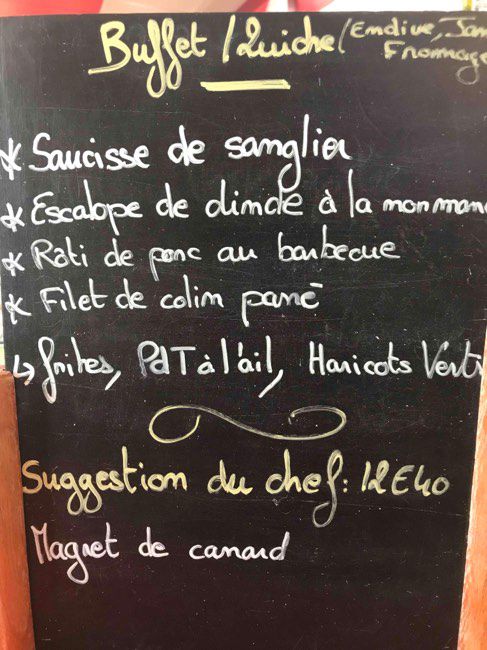 Buffet / Quiche (Endive, Jam
Fromage
* Saucisse de sanglier
* Escalope de dinde à la normman
* Rôti de porc au barbecue
* Filet de colin pané
↳ frites, PdT à l'ail, Haricots Verts
Suggestion du chef: 12E40
Magret de canard